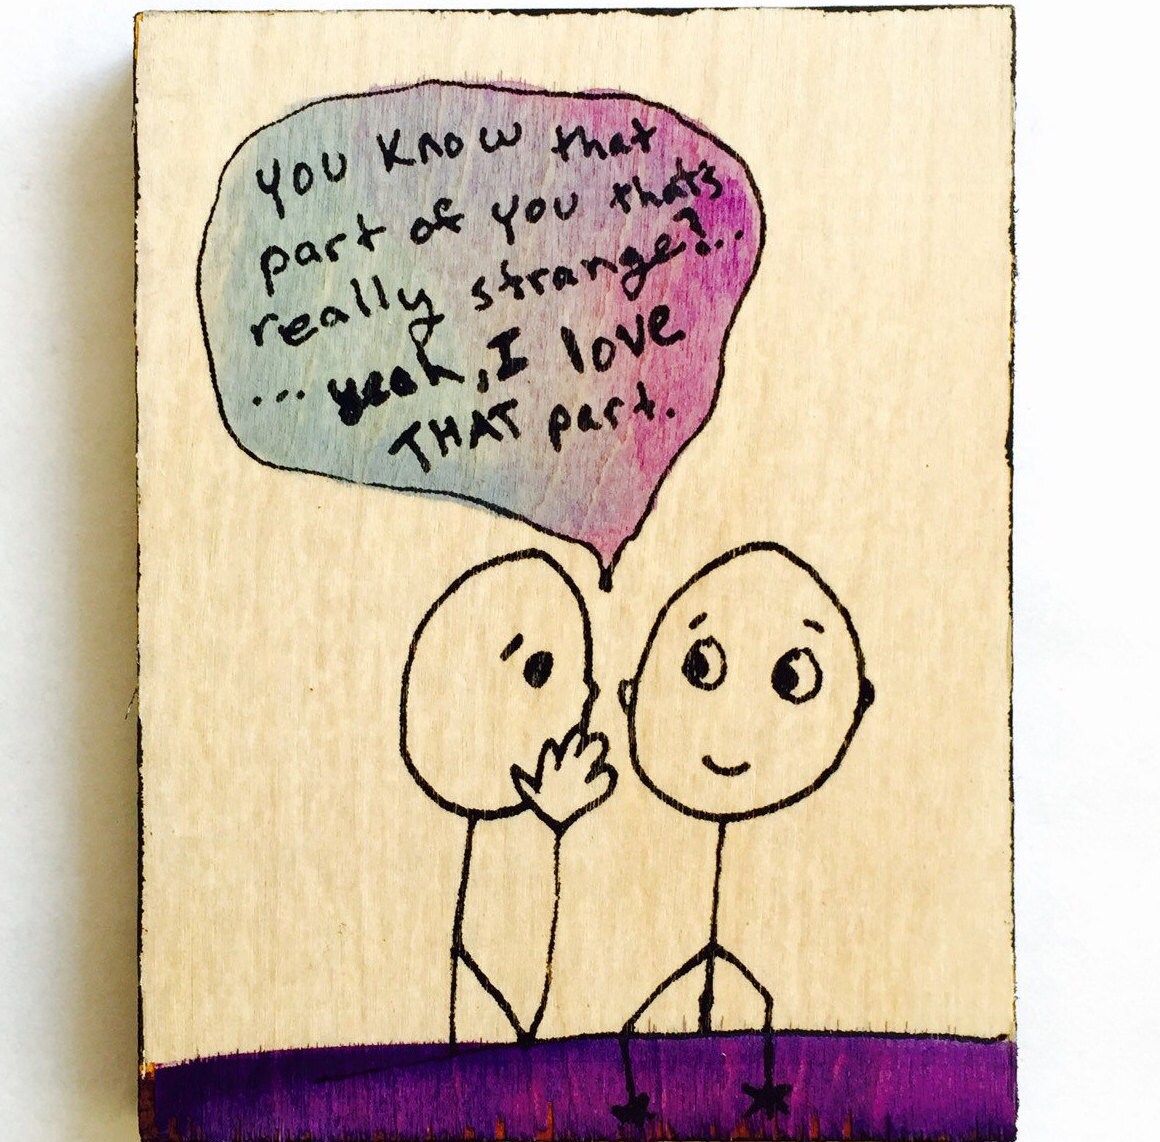 you know that
part of you that's
really strange?..
... yeah, I love
THAT part.